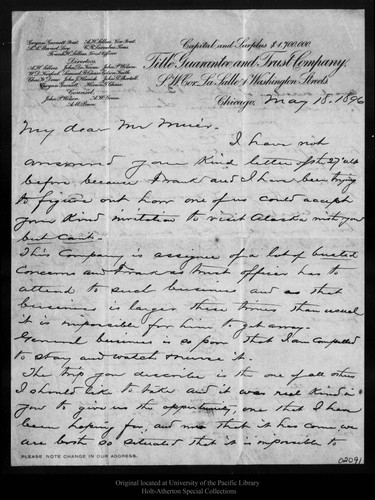 Capital and Surplus $1,700,000.
Title Guarantee and Trust Company.
S.W. Cor. La Salle & Washington Streets
Directors
Counsel
Chicago, May 18. 1896
My dear Mr Muir.
I have not
answered your kind letter of the 27' ult
before because Frank and I have been trying
to figure out how one of us could accept
your kind invitation to visit Alaska with you
but can't.
This Company is assignee of a lot of busted
concerns and Frank as trust officer has to
attend to such business and as that
business is larger these times than usual
it is impossible for him to get away.
General business is so poor that I am compelled
to stay and watch nurse it.
The trip you describe is the one of all others
I should like to take and it was real kind in
you to give us the opportunity, one that I have
been hoping for, and now that it has come we
are both so situated that it is impossible to
PLEASE NOTE CHANGE IN OUR ADDRESS.
02091
Original located at University of the Pacific Library
Holt-Atherton Special Collections